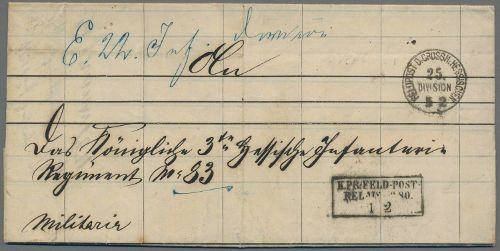 E. 22. Inf
An
FELDPOST D. GROSSH. HESSISCHEN
25.
DIVISION
5 2
Das Königliche 3te Hessische Infanterie
Regiment No 83
K.PR.FELD-POST-
RELAIS No 80.
1 2
Militaria